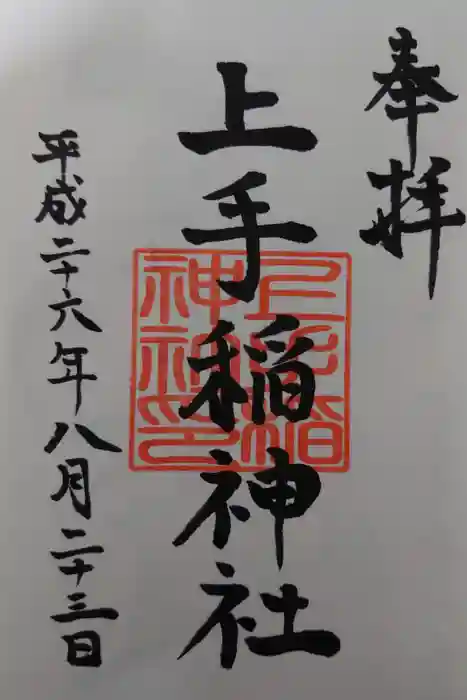 奉拝
上手稲神社
平成二十六年八月二十三日
上手稲神社印